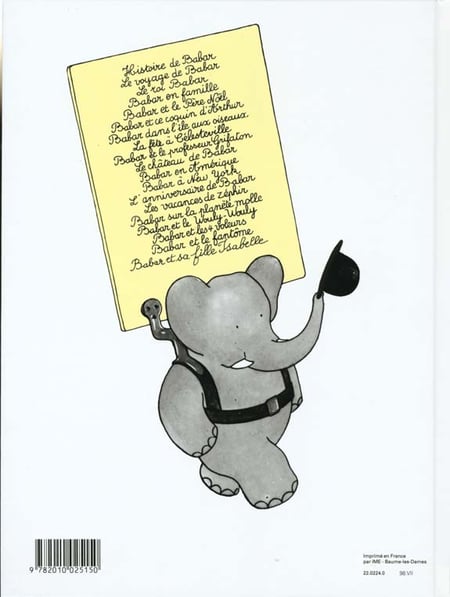 Histoire de Babar
Le voyage de Babar
Le roi Babar
Babar en famille
Babar et le Père Noël
Babar et ce coquin d'Arthur
Babar dans l'île aux oiseaux
La fête à Célesteville
Babar et le professeur Grifaton
Le château de Babar
Babar en Amérique
Babar à New York
L'anniversaire de Babar
Les vacances de Zéphir
Babar sur la planète molle
Babar et le Wouly-Wouly
Babar et les 4 voleurs
Babar et le fantôme
Babar et sa fille Isabelle
9 782010 025150
Imprimé en France
par IME - Baume-les-Dames
22.0224.0 98 VII